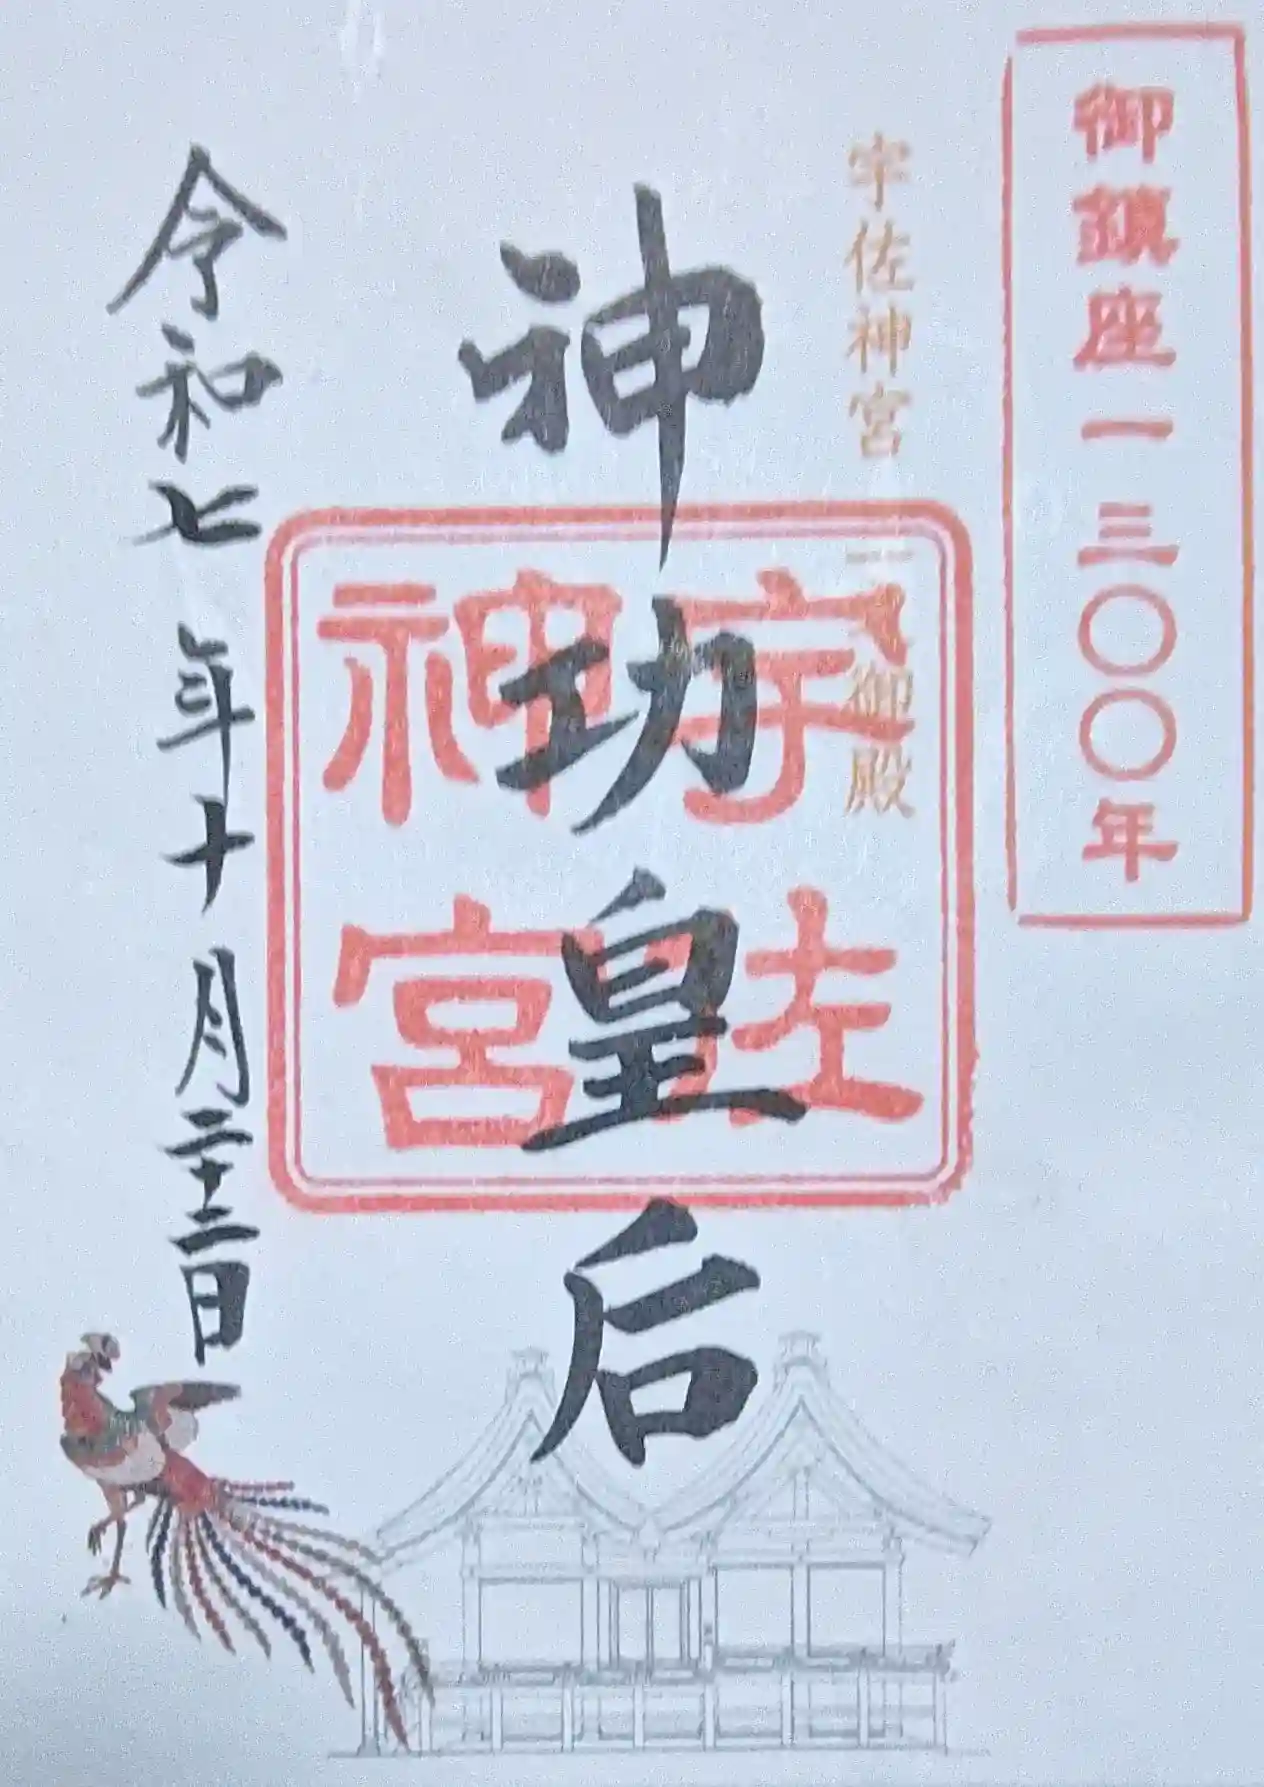 御鎮座一三〇〇年
宇佐神宮
御殿
神功皇后
宇佐
神宮
令和七年十月二十二日